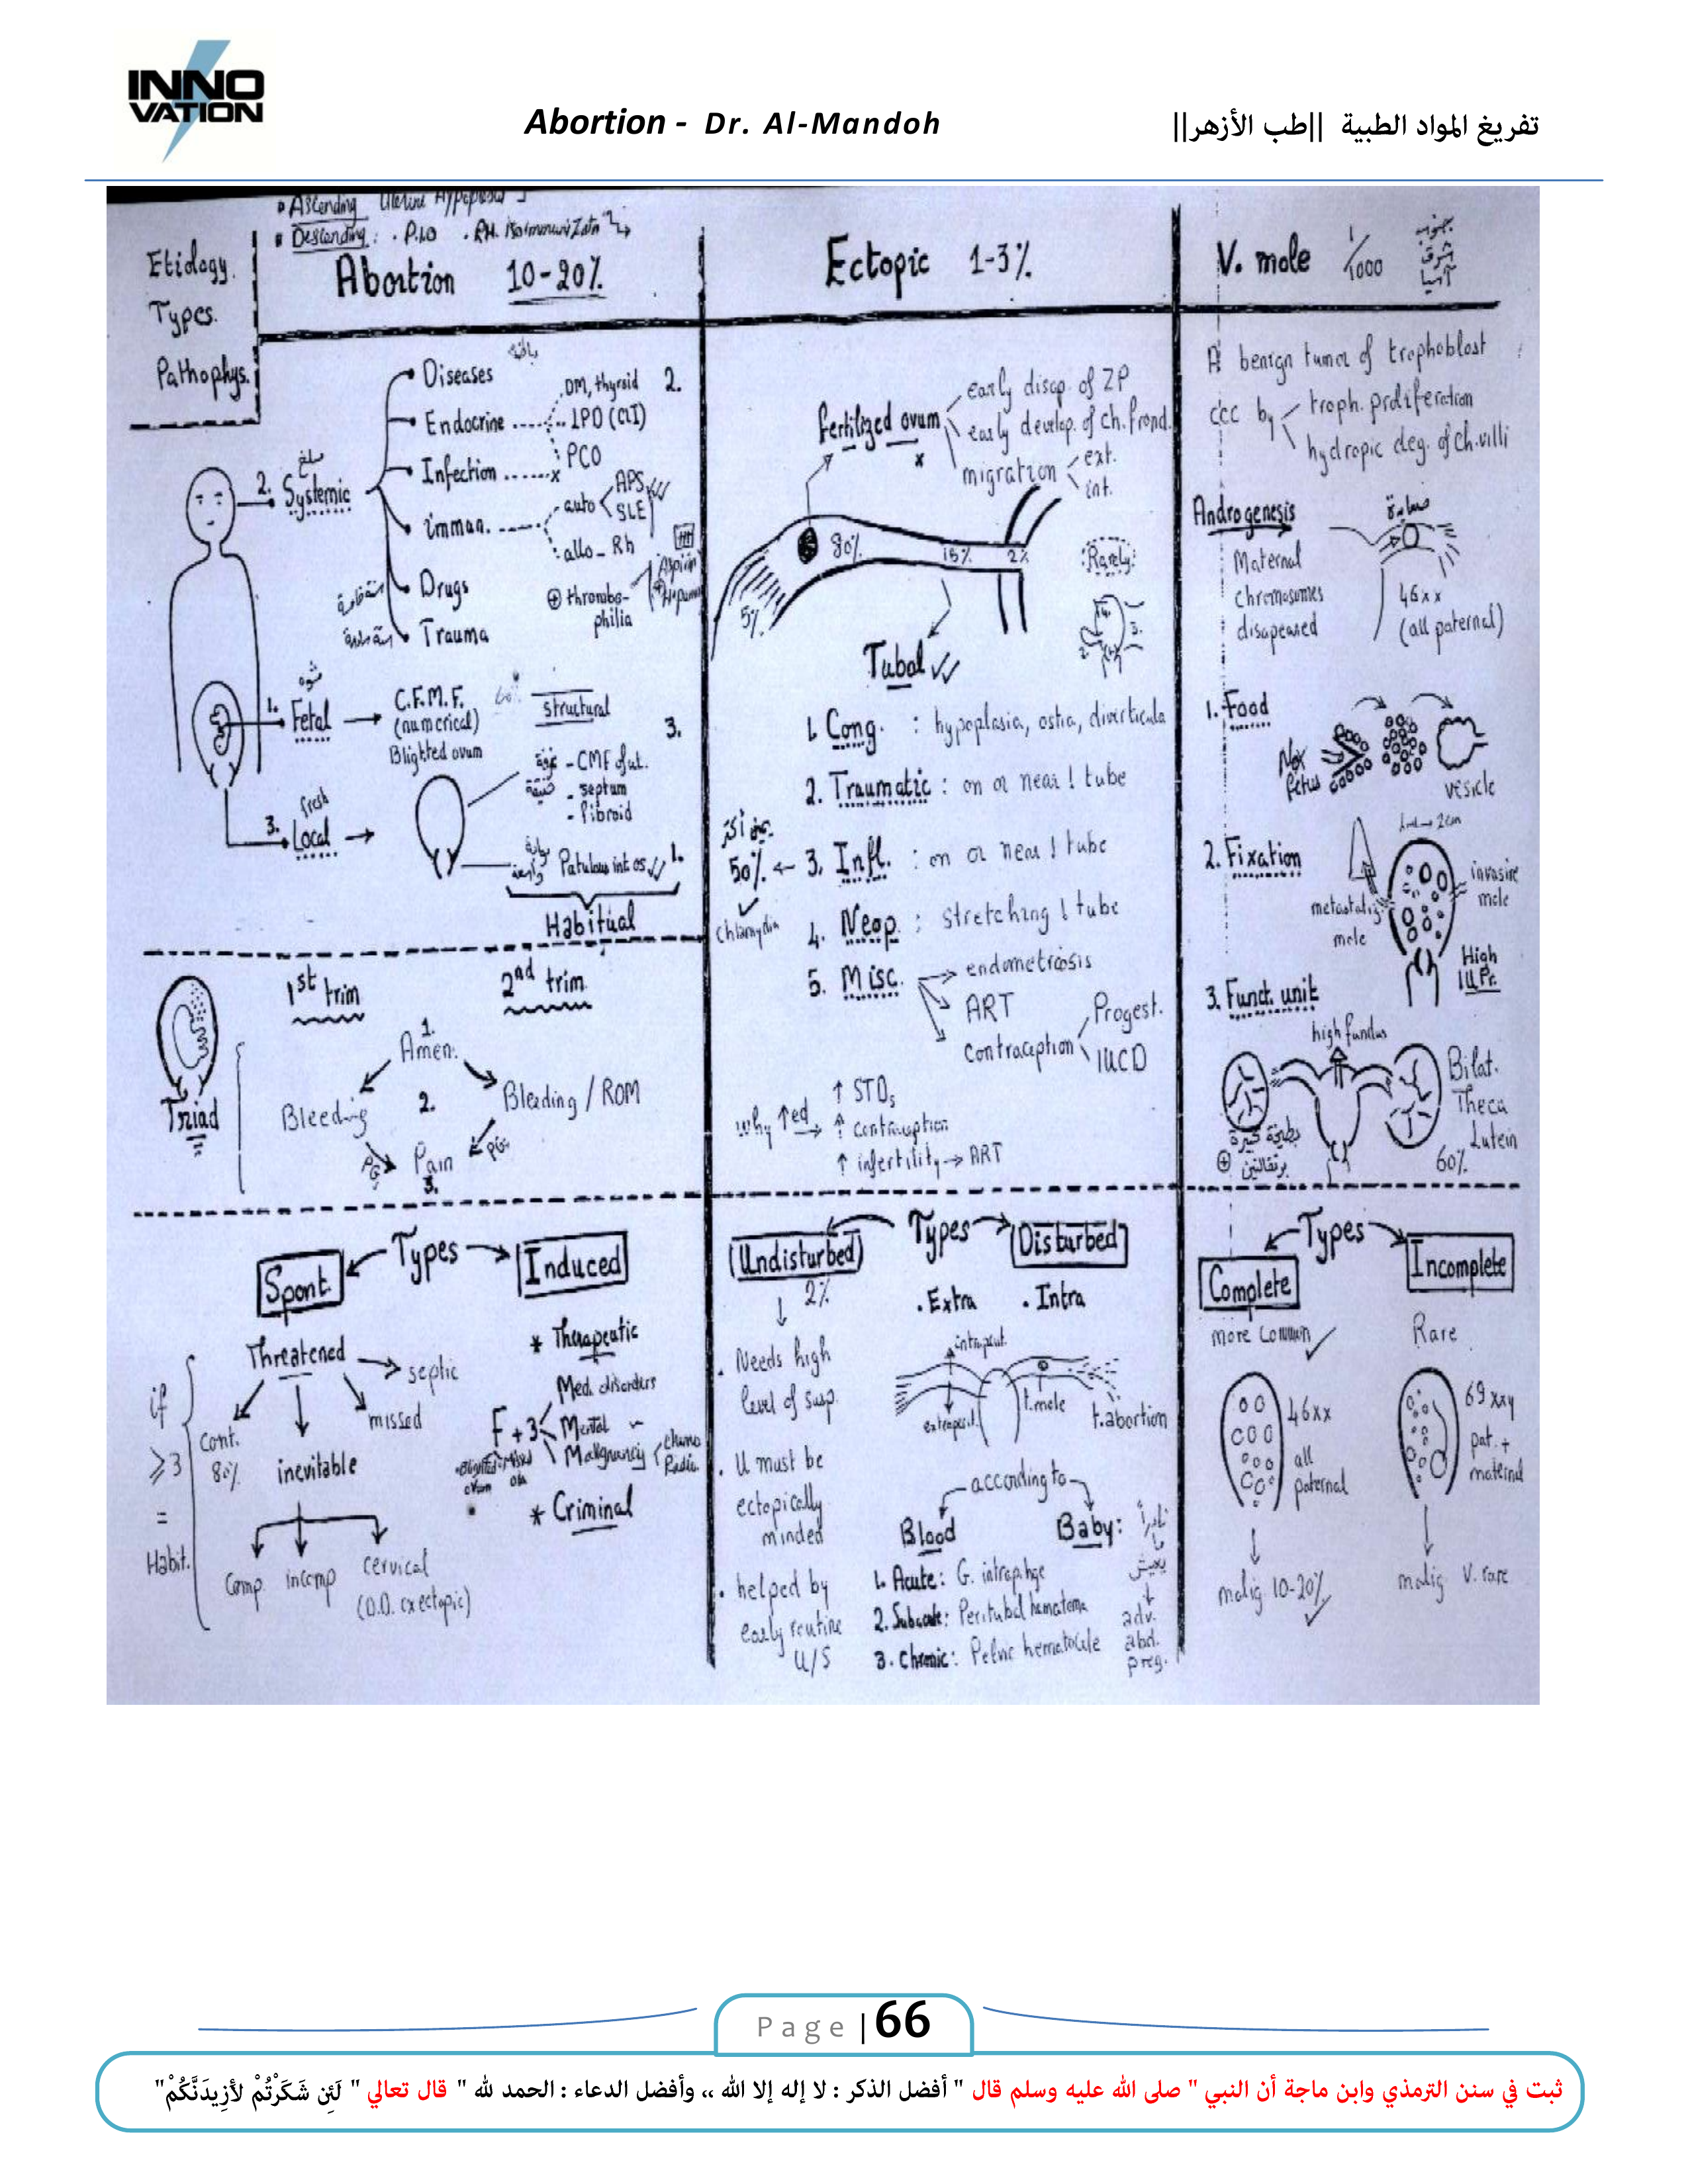 INNO
VATION
Abortion - Dr. Al-Mandoh
تفريغ المواد الطبية ||طب الأزهر||
Ascending
Descending: . P.I.D . RH. isoimmunization
Etiology.
Types.
Pathophys.
Abortion 10-20%
2. Systemic
Diseases
Endocrine
DM, thyroid 2.
LPD (CLI)
PCO
Infection
imman.
auto
APS
SLE
allo - Rh
Drugs
⊕ thrombo-
philia
Aspirin
Trauma
1. Fetal
C.F.M.F.
(numerical)
Blighted ovum
structural
3.
- CMF of ut.
- septum
- Fibroid
fresh
3. Local
Patulous int os 1.
Habitual
Triad
1st trim
2nd trim
1.
Amen.
Bleeding
2.
Bleeding / ROM
PG
Pain
PG
3.
Types
Spont.
Induced
Threatened
septic
missed
Cont.
80%
inevitable
if
≥3
=
Habit.
Comp.
incomp
cervical
(D.D. cx ectopic)
* Therapeutic
F + 3
Med. disorders
Mental
Malignancy
chemo
Radio.
Blighted
ovum
Missed
* Criminal
Ectopic 1-3%
Fertilized ovum
x
early disap. of ZP
early develop. of ch. frond.
migration
ext.
int.
80%
15%
2%
5%
Rarely:
Tubal
1. Cong. : hypoplasia, ostia, diverticula
2. Traumatic : on or near ! tube
50% ← 3. Infl. : on or near ! tube
chlamydia
4. Neop. : stretching ! tube
5. Misc.
endometriosis
ART
contraception
Progest.
IUCD
why ↑ed
↑ STDs
↑ contraception
↑ infertility → ART
Types
Undisturbed
Disturbed
2%
. Extra . Intra
. Needs high
level of susp.
. U must be
ectopically
minded
. helped by
early routine
U/S
intraperit.
extraperit.
t.mole
t.abortion
according to
Blood
Baby:
1. Acute: G. intrap. hge
2. Subacute: Peritubal hematoma
3. Chronic: Pelvic hematocele
نادراً
ما
يعيش
adv.
abd.
preg.
V. mole 1/1000
جنوب
شرق
آسيا
A benign tumor of trophoblast
ccc by
troph. proliferation
hydropic deg. of ch. villi
Androgenesis
Maternal
chromosomes
disapeared
46xx
(all paternal)
1. Food
No x
fetus
vesicle
2. Fixation
1ml → 2cm
metastatic
mole
invasive
mole
High
IUPr.
3. Funct. unit
high fundus
Bilat.
Theca
Lutein
60%
Types
Complete
Incomplete
more common
Rare
46xx
all
paternal
69xxy
pat. +
maternal
malig. 10-20%
malig. V. rare
Page | 66
ثبت في سنن الترمذي وابن ماجة أن النبي " صلى الله عليه وسلم قال " أفضل الذكر : لا إله إلا الله ،، وأفضل الدعاء : الحمد لله " قال تعالي " لَئِن شَكَرْتُمْ لأَزِيدَنَّكُمْ"